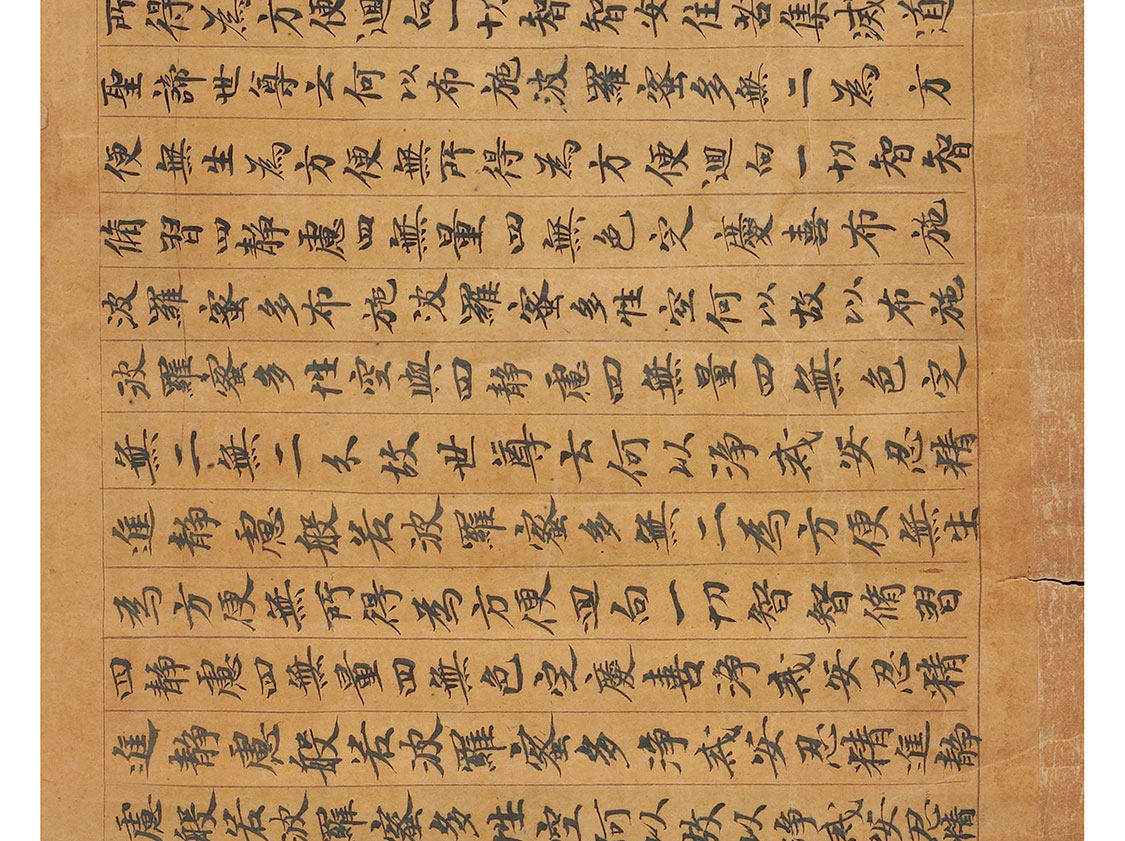 所得為方便迴向一切智智安住苦集滅道
聖諦世尊云何以布施波羅蜜多無二為方
便無生為方便無所得為方便迴向一切智智
脩習四靜慮四無量四無色定慶喜布施
波羅蜜多布施波羅蜜多性空何以故以布施
波羅蜜多性空與四靜慮四無量四無色定
無二無二分故世尊云何以淨戒安忍精
進靜慮般若波羅蜜多無二為方便無生
為方便無所得為方便迴向一切智智脩習
四靜慮四無量四無色定慶喜淨戒安忍精
進靜慮般若波羅蜜多淨戒安忍精進靜
慮般若波羅蜜多性空何以故以淨戒安忍精